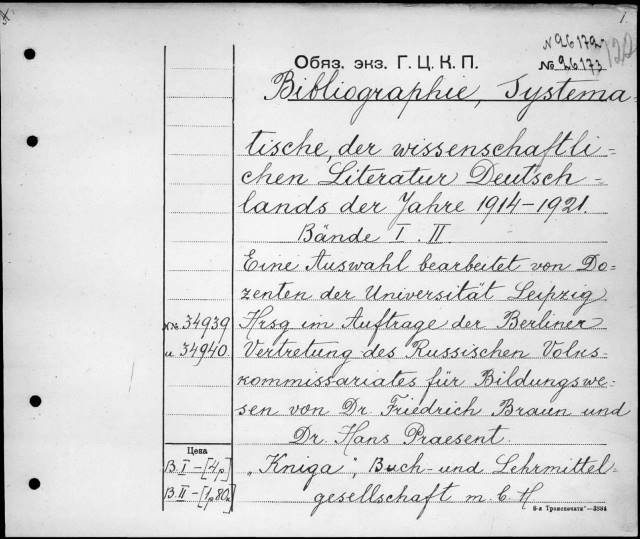 1.
№ 26172
Обяз. экз. Г. Ц. К. П. № 26173
Bibliographie, Systema-
tische, der wissenschaftli=
chen Literatur Deutsch-
lands der Jahre 1914-1921.
Bände I. II.
Eine Auswahl bearbeitet von Do=
zenten der Universität Leipzig.
№№ 34939 Hrsg im Auftrage der Berliner
и 34940 Vertretung des Russischen Volks-
kommissariates für Bildungswe-
sen von Dr. Friedrich Braun und
Dr. Hans Praesent.
Цена
B. I - [4р] "Kniga", Buch- und Lehrmittel-
B. II - [1р.80к] gesellschaft m. b. H
8-я Транспечати"—3884